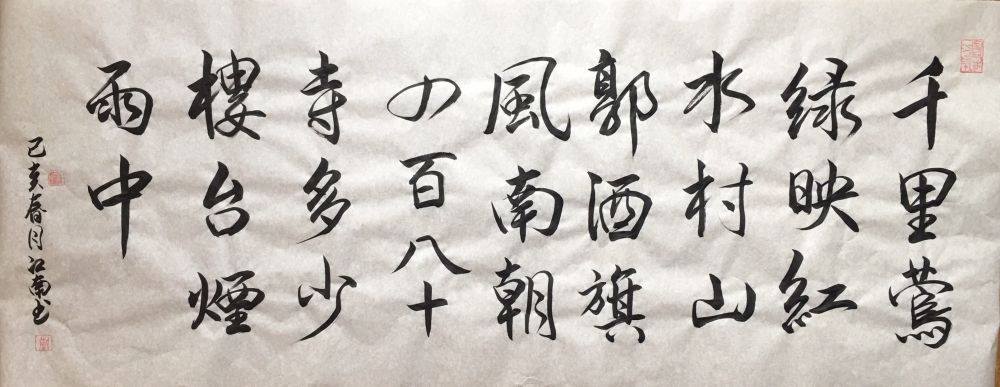 千里鶯
緑映紅
水村山
郭酒旗
風南朝
四百八十
寺多少
樓台煙
雨中
己亥春月江南书